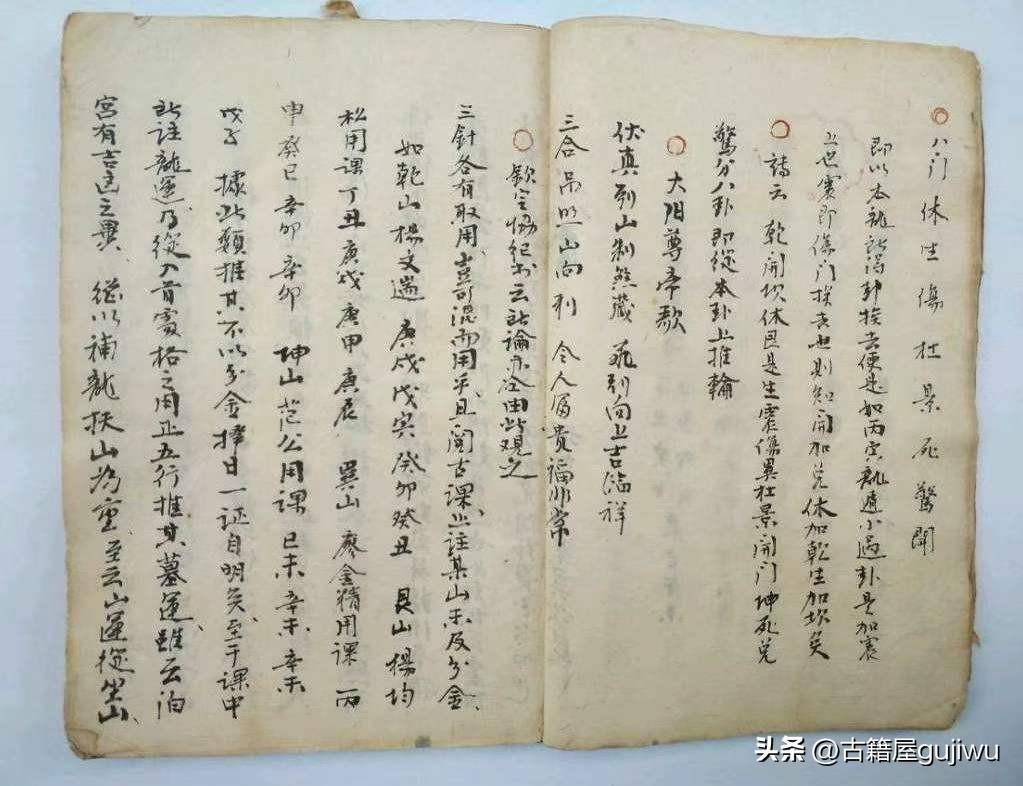 八门休生傷杜景死驚開
即以本龍所得卦挨去便是如丙寅龍遁小過卦是加震
上也寅即傷门挨去也則知開加兑休加乾生加坎矣
詩云乾開坎休艮是生震傷巽杜景開门坤死兑
驚分八卦即從本卦上推輪
太阳尊帝歌
伏真到山制煞藏飛到向上吉福祥
三合吊照山向利令人富貴福非常
欽定協紀书云所論亦冷由此观之
三針各有取用豈可混而用乎且閲古課止註某山未及分金
如乾山楊文遄庚戌戊寅癸卯癸丑艮山楊均
松用課丁丑庚戌庚申庚辰巽山廖金精用課丙
申癸巳辛卯辛卯坤山范公用課己未辛未辛未
戊子據此類推其不以分金擇日一证自明矣至于課中
所註龍運乃從入首處格之用正五行推其墓運雖云泊
宮有吉凶之異總以補龍扶山為重至云山運從坐山
头条@古籍屋gujiwu